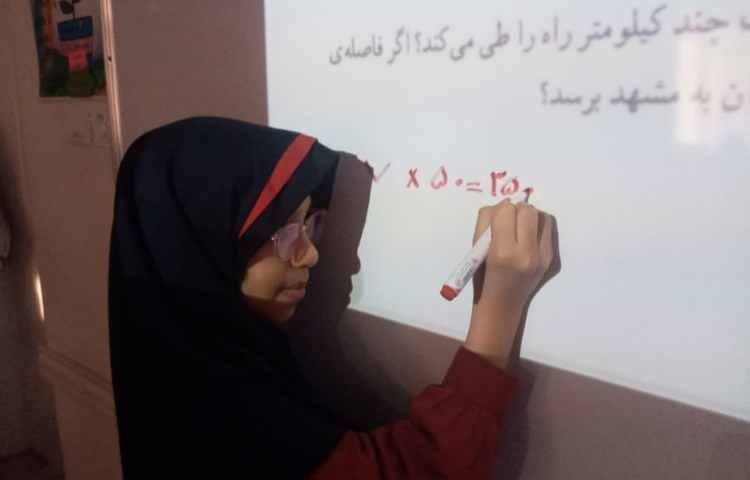 چند کیلومتر راه را طی می‌کند؟ اگر فاصله‌ی
به مشهد برسد؟
۷ × ۵۰ = ۳۵۰